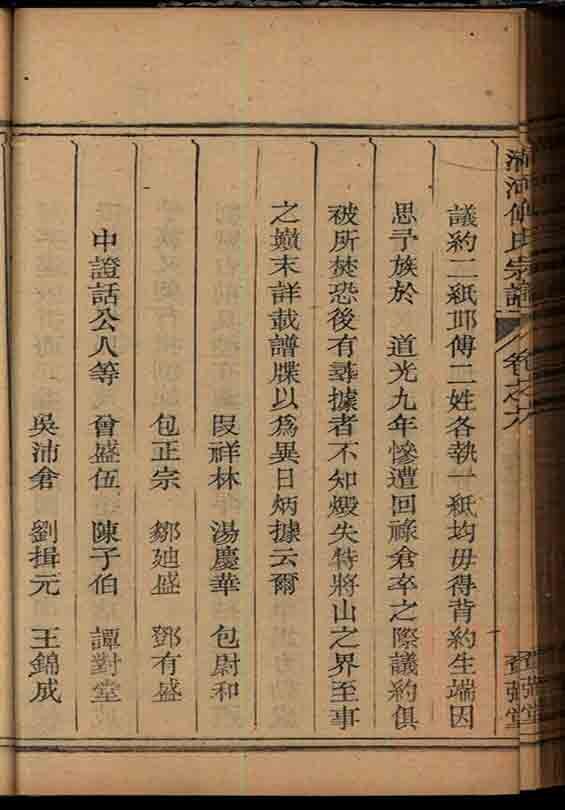 清河傅氏宗譜 卷之六
議約二紙邱傅二姓各執一紙均毋得背約生端因
思予族於 道光九年慘遭回祿倉卒之際議約俱
被所焚恐後有尋據者不知燬失特將山之界至事
之巔末詳載譜牒以為異日炳據云爾
段祥林 湯慶華 包尉和
包正宗 鄒廸盛 鄧有盛
中證話公人等 曾盛伍 陳子伯 譚對堂
吳沛倉 劉揖元 王錦成